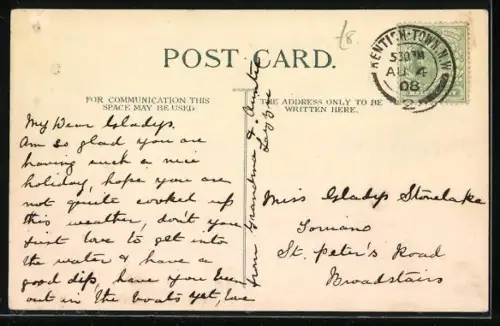 £8
POST CARD.
KENTISH-TOWN. N.W.
5.30PM
AU 4
08
2
FOR COMMUNICATION THIS
SPACE MAY BE USED.
THE ADDRESS ONLY TO BE
WRITTEN HERE.
My Dear Gladys.
Am so glad you are
having such a nice
holiday, hope you are
not quite cooked up
this weather, don't you
just love to get into
the water & have a
good dip, have you been
out in the boats yet, we
from Grandma & Auntie
Lizzie
Miss Gladys Stonelake
St. Peter's Road
Broadstairs